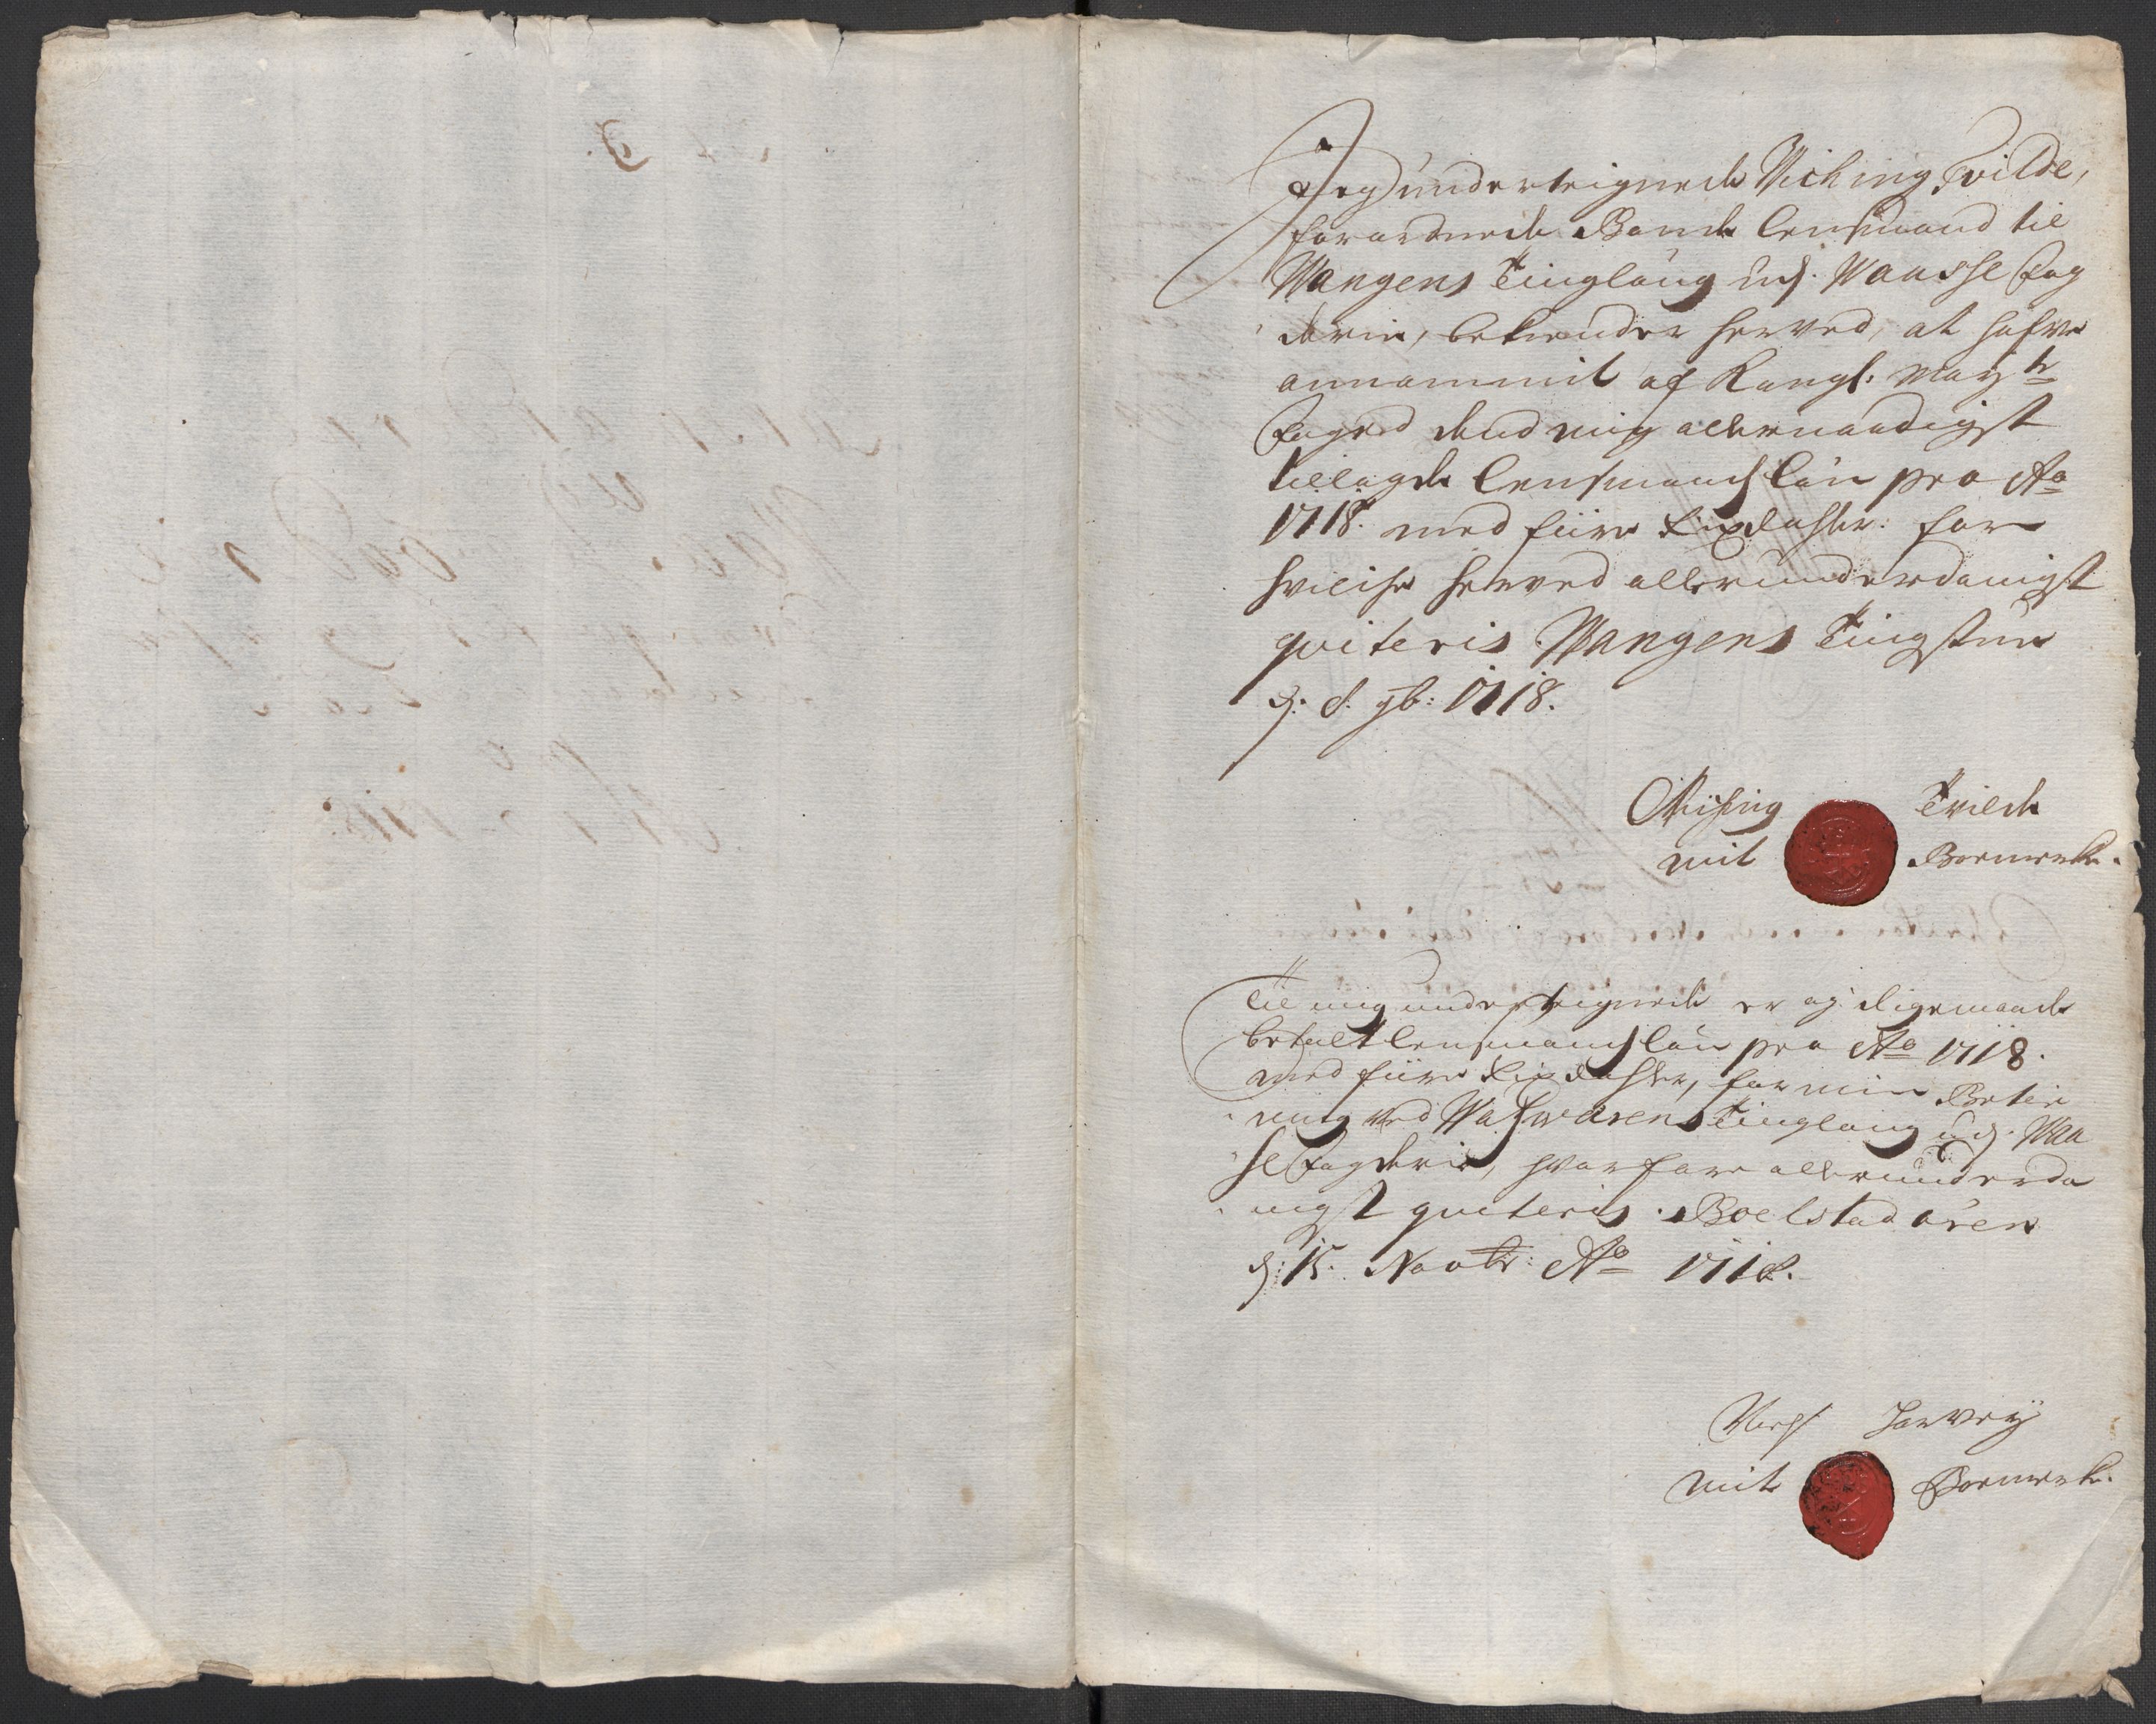 Jeg underteignede Viching Tvilde,
forordnede Bonde Lensmand til
Wangens Tinglaug udj. Waasse Fog
derie, bekiender herved, at hafve
annammit af Kongl: May.tz
Foged dend mig allernaadigst
tillagde Lensmands Løn pro Ao
1718. med fiire Rixdahler: for
hvilche herved allerunderdanigst
qviteris Wangens Tingstue
d: 8. 9b: 1718.
Viching Tvilde
mit Boemerke.
Til mig underteignede er og ligemaade
betalt Lensmands Løn pro Ao 1718.
med fiire Rixdahler, for min Betie
ning ved Tinglaug udj. Waa
se Fogderie, hvorfore allerunderda
nigst qviteris. Boelstadøren
d: 15. Novbr: Ao 1718.
mit Boemerke.